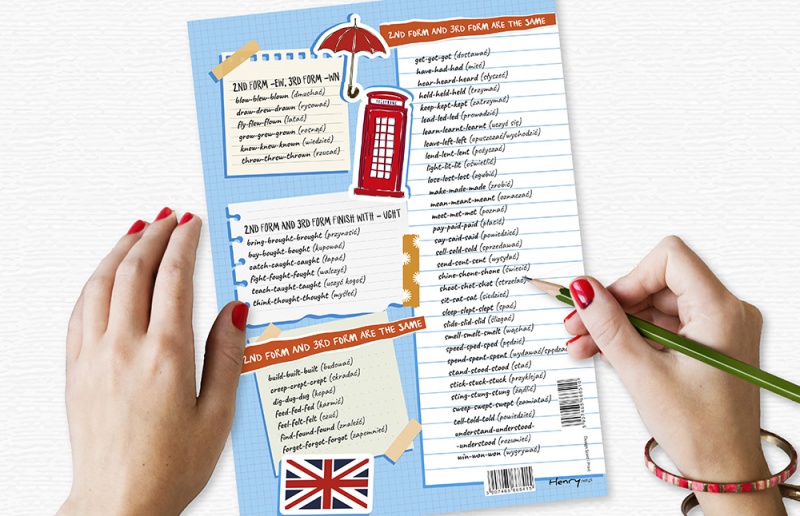 2ND FORM -EW, 3RD FORM -WN
blow-blew-blown (dmuchać)
draw-drew-drawn (rysować)
fly-flew-flown (latać)
grow-grew-grown (rosnąć)
know-knew-known (wiedzieć)
throw-threw-thrown (rzucać)
TELEPHONE
2ND FORM AND 3RD FORM FINISH WITH - UGHT
bring-brought-brought (przynosić)
buy-bought-bought (kupować)
catch-caught-caught (łapać)
fight-fought-fought (walczyć)
teach-taught-taught (uczyć kogoś)
think-thought-thought (myśleć)
2ND FORM AND 3RD FORM ARE THE SAME
build-built-built (budować)
creep-crept-crept (skradać)
dig-dug-dug (kopać)
feed-fed-fed (karmić)
feel-felt-felt (czuć)
find-found-found (znaleźć)
forget-forgot-forgot (zapomnieć)
2ND FORM AND 3RD FORM ARE THE SAME
get-got-got (dostawać)
have-had-had (mieć)
hear-heard-heard (słyszeć)
held-held-held (trzymać)
keep-kept-kept (zatrzymać)
lead-led-led (prowadzić)
learn-learnt-learnt (uczyć się)
leave-left-left (opuszczać/wychodzić)
lend-lent-lent (pożyczać)
light-lit-lit (oświetlić)
lose-lost-lost (zgubić)
make-made-made (zrobić)
mean-meant-meant (oznaczać)
meet-met-met (poznać)
pay-paid-paid (płacić)
say-said-said (powiedzieć)
sell-sold-sold (sprzedawać)
send-sent-sent (wysyłać)
shine-shone-shone (świecić)
shoot-shot-shot (strzelać)
sit-sat-sat (siedzieć)
sleep-slept-slept (spać)
slide-slid-slid (ślizgać)
smell-smelt-smelt (wąchać)
speed-sped-sped (pędzić)
spend-spent-spent (wydawać/spędzać
stand-stood-stood (stać)
stick-stuck-stuck (przyklejać)
sting-stung-stung (żądlić)
sweep-swept-swept (zamiatać)
tell-told-told (powiedzieć)
understand-understood-
-understood (rozumieć)
win-won-won (wygrywać)
Henry